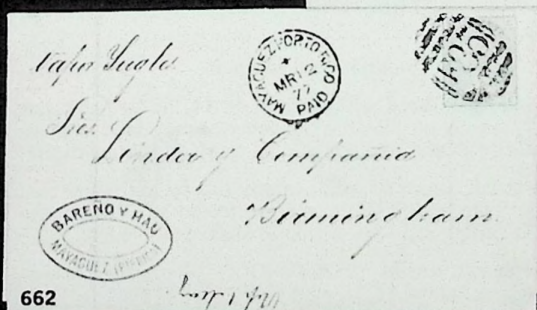 MAYAGUEZ PORTO RICO
MR 12
77
PAID
Sres.
Linder y Compañia
Birmingham
BAREÑO Y HAU
MAYAGUEZ
662